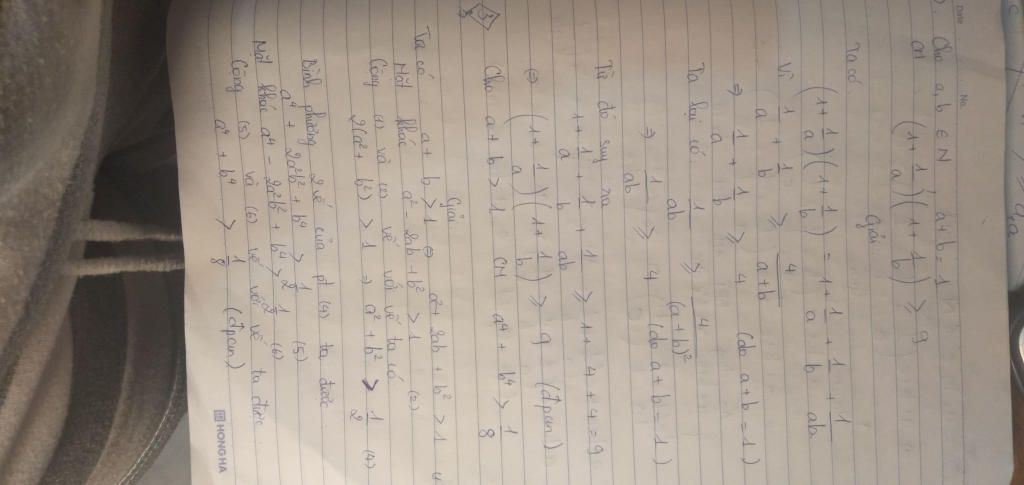 Date No.
Cho a,b ∈ N, a+b=1
CM (1+1/a)(1+1/b) ≥ 9
Giải
Ta có
(1+1/a)(1+1/b) = 1+1/a+1/b+1/ab
Vì 1/a + 1/b ≥ 4/a+b
⇒ 1/a + 1/b ≥ 4 (do a+b=1)
Ta lại có 1/ab ≥ 4/(a+b)²
⇒ 1/ab ≥ 4 (do a+b=1)
Từ đó suy ra
1+1/a+1/b+1/ab ≥ 1+4+4=9
⇔ (1+1/a)(1+1/b) ≥ 9 (đpcm)
3 Cho a+b>1 CM a⁴+b⁴>1/8
Giải
Ta có a+b>1 ⇔ a²+2ab+b²>1
Mặt khác a²-2ab+b²>1 (2)
Cộng (1) và (2) vế với vế ta có
2(a²+b²)>1 ⇒ a²+b²>1/2 (4)
Bình phương 2 vế của pt (4) ta được
a⁴+2a²b²+b⁴>1/2 (5)
Mặt khác a⁴-2a²b²+b⁴>1/2 (6)
Cộng (5) và (6) vế với vế ta được
a⁴+b⁴>1/8 (đpcm)
HONG HA